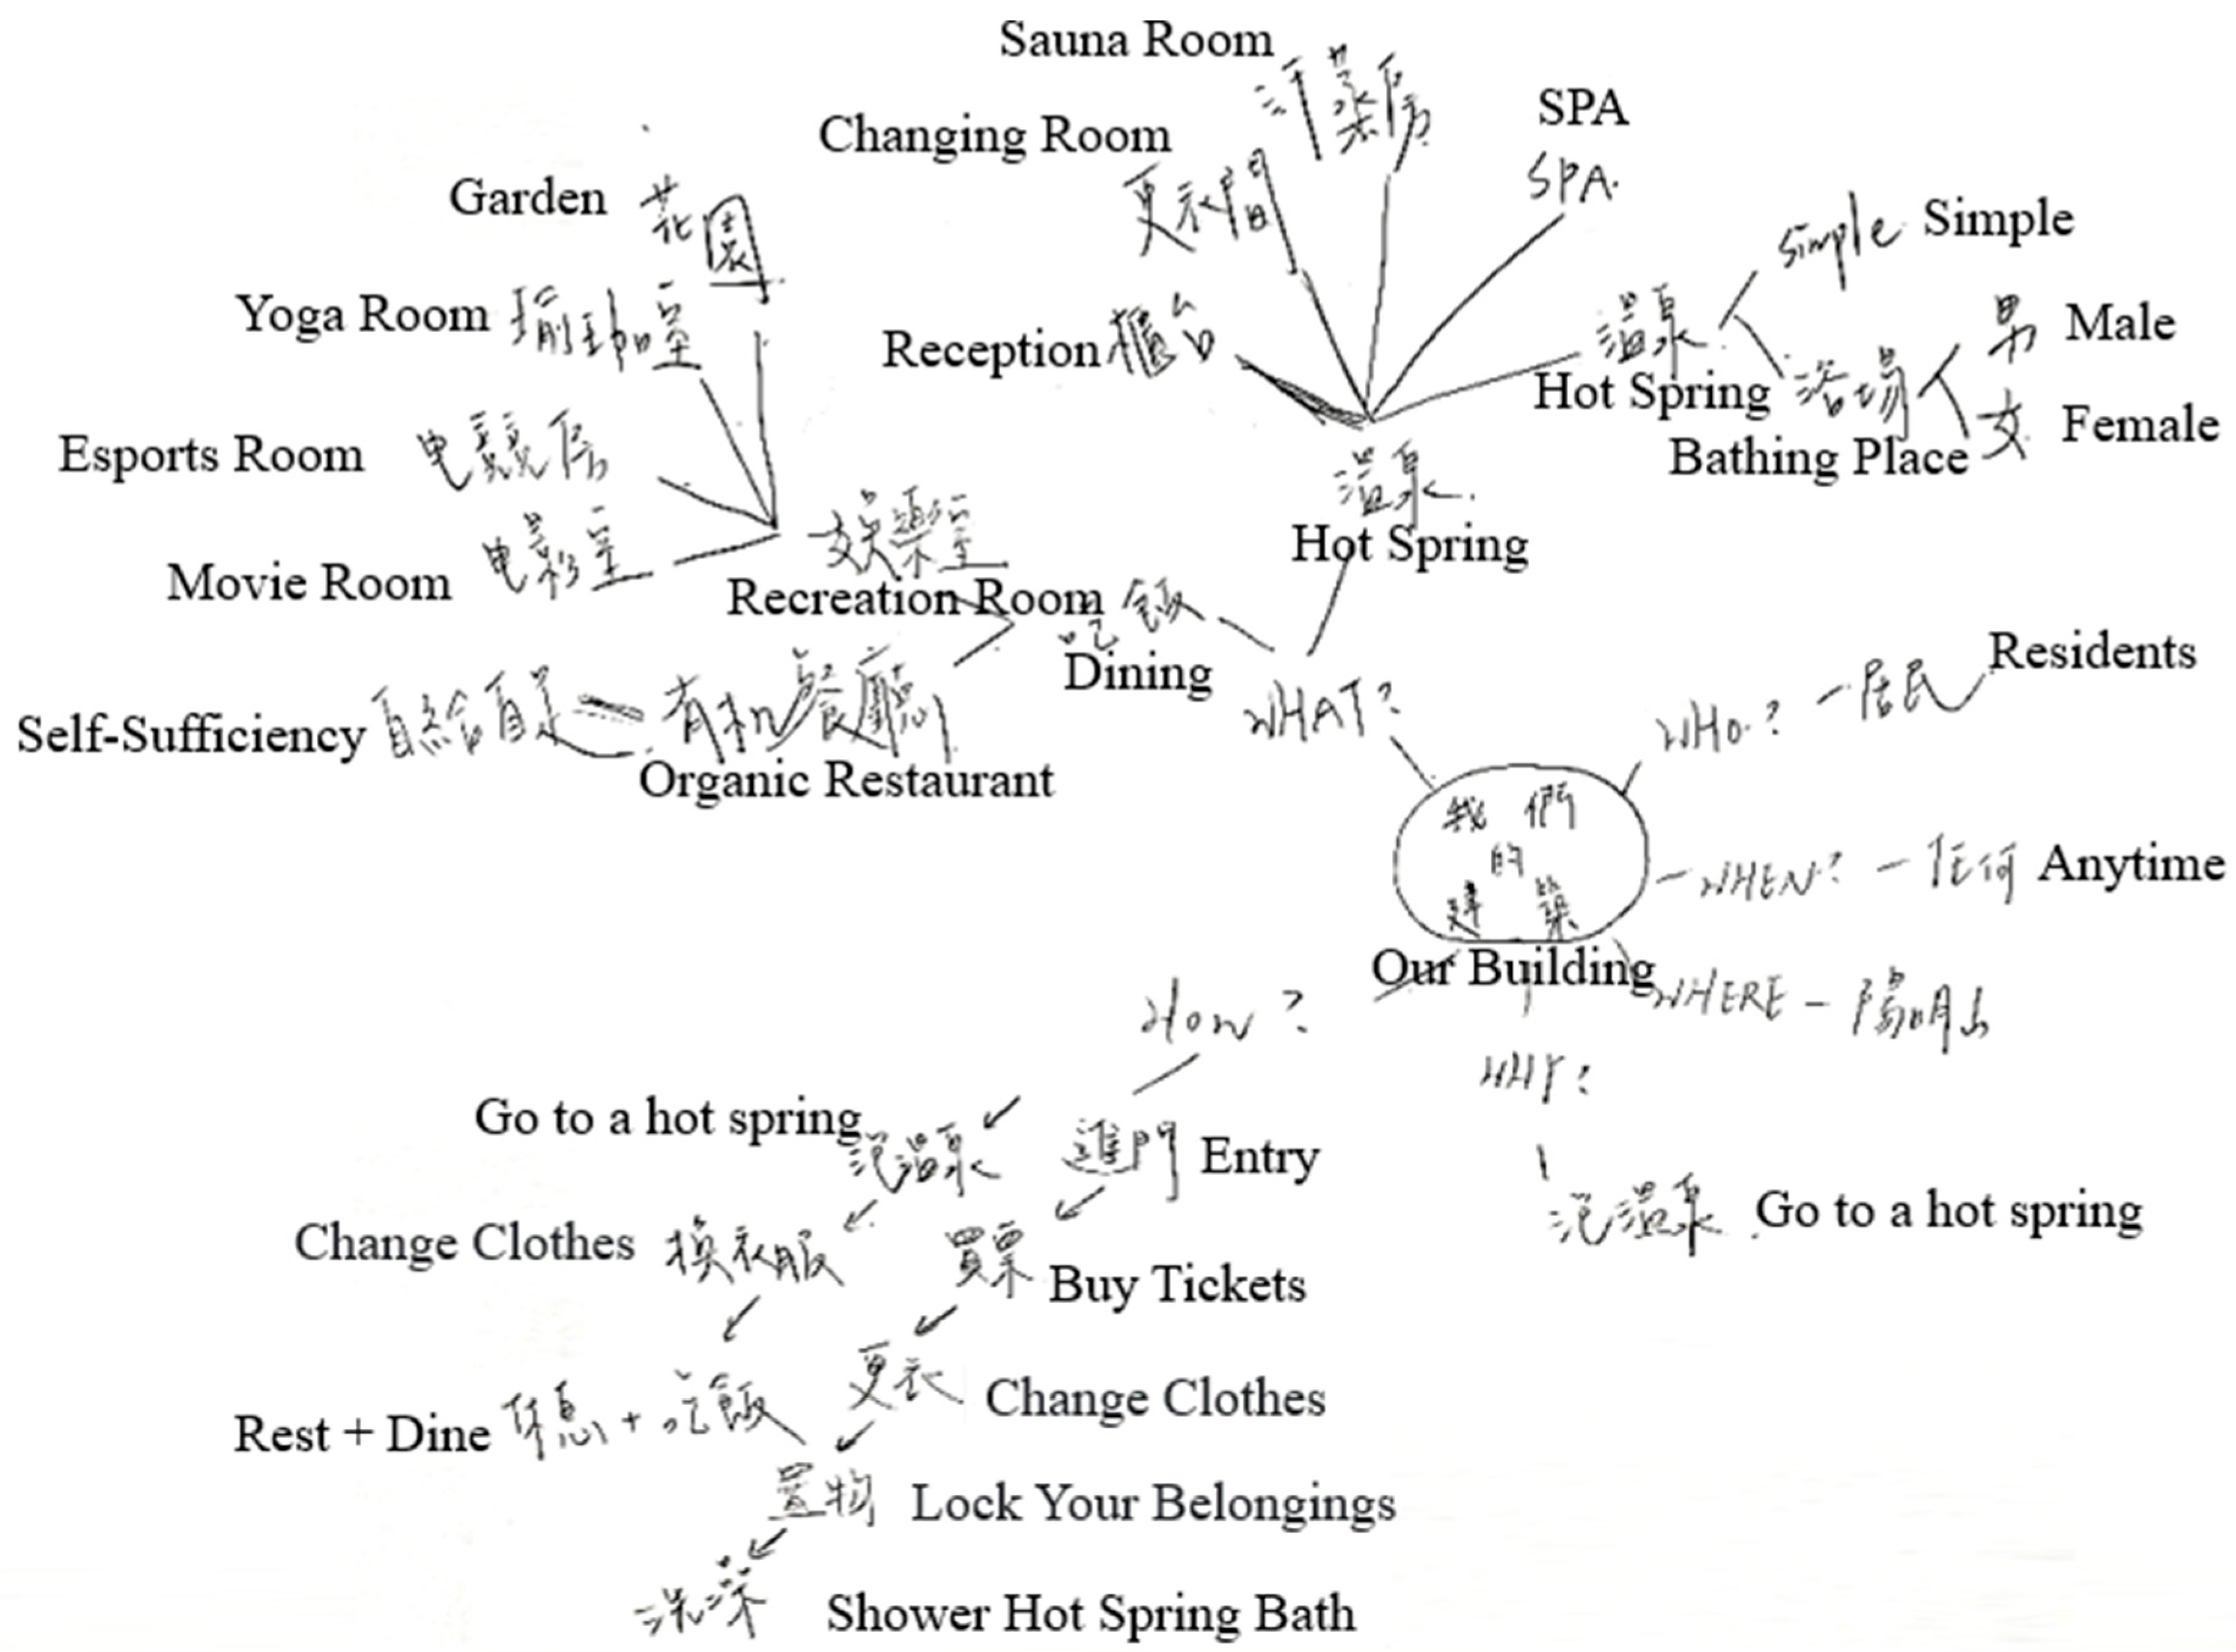 Sauna Room
汗蒸房
SPA
SPA.
Changing Room
更衣間
Garden 花園
simple Simple
Yoga Room 瑜珈室
Reception 櫃台
溫泉
Hot Spring
男 Male
浴場
Bathing Place
女 Female
Esports Room 电競房
溫泉
Hot Spring
Movie Room 电影室
娛樂室
Recreation Room
吃飯
Dining
Self-Sufficiency 自給自足
有机餐廳
Organic Restaurant
WHAT?
WHO? - 居民 Residents
我們
的
建築
Our Building
- WHEN? - 任何 Anytime
WHERE - 陽明山
HOW?
WHY?
Go to a hot spring 泡溫泉
進門 Entry
泡溫泉 Go to a hot spring
Change Clothes 換衣服
買票 Buy Tickets
更衣 Change Clothes
Rest + Dine 休息 + 吃飯
置物 Lock Your Belongings
洗澡 Shower Hot Spring Bath